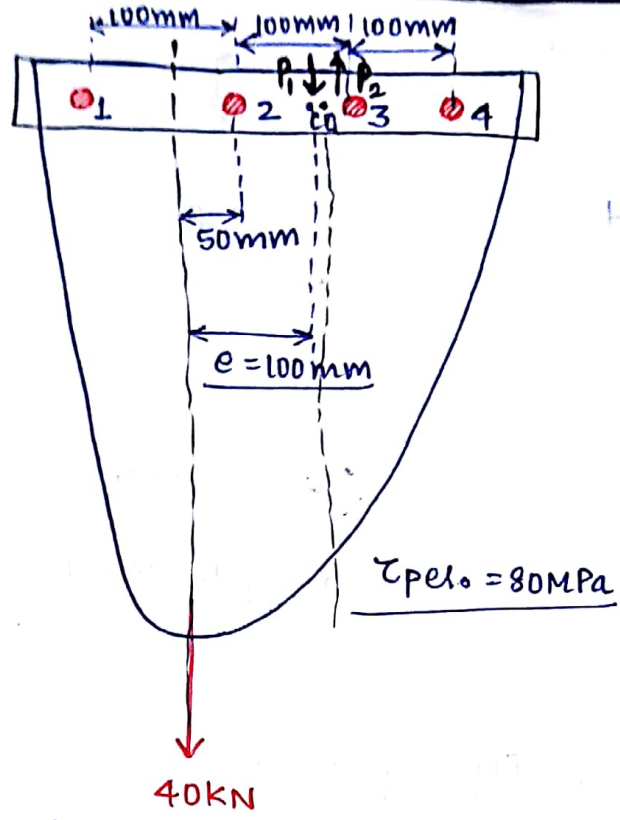 100mm
100mm
100mm
P₁
P₂
1
2
3
4
50mm
e = 100mm
τper. = 80MPa
40KN